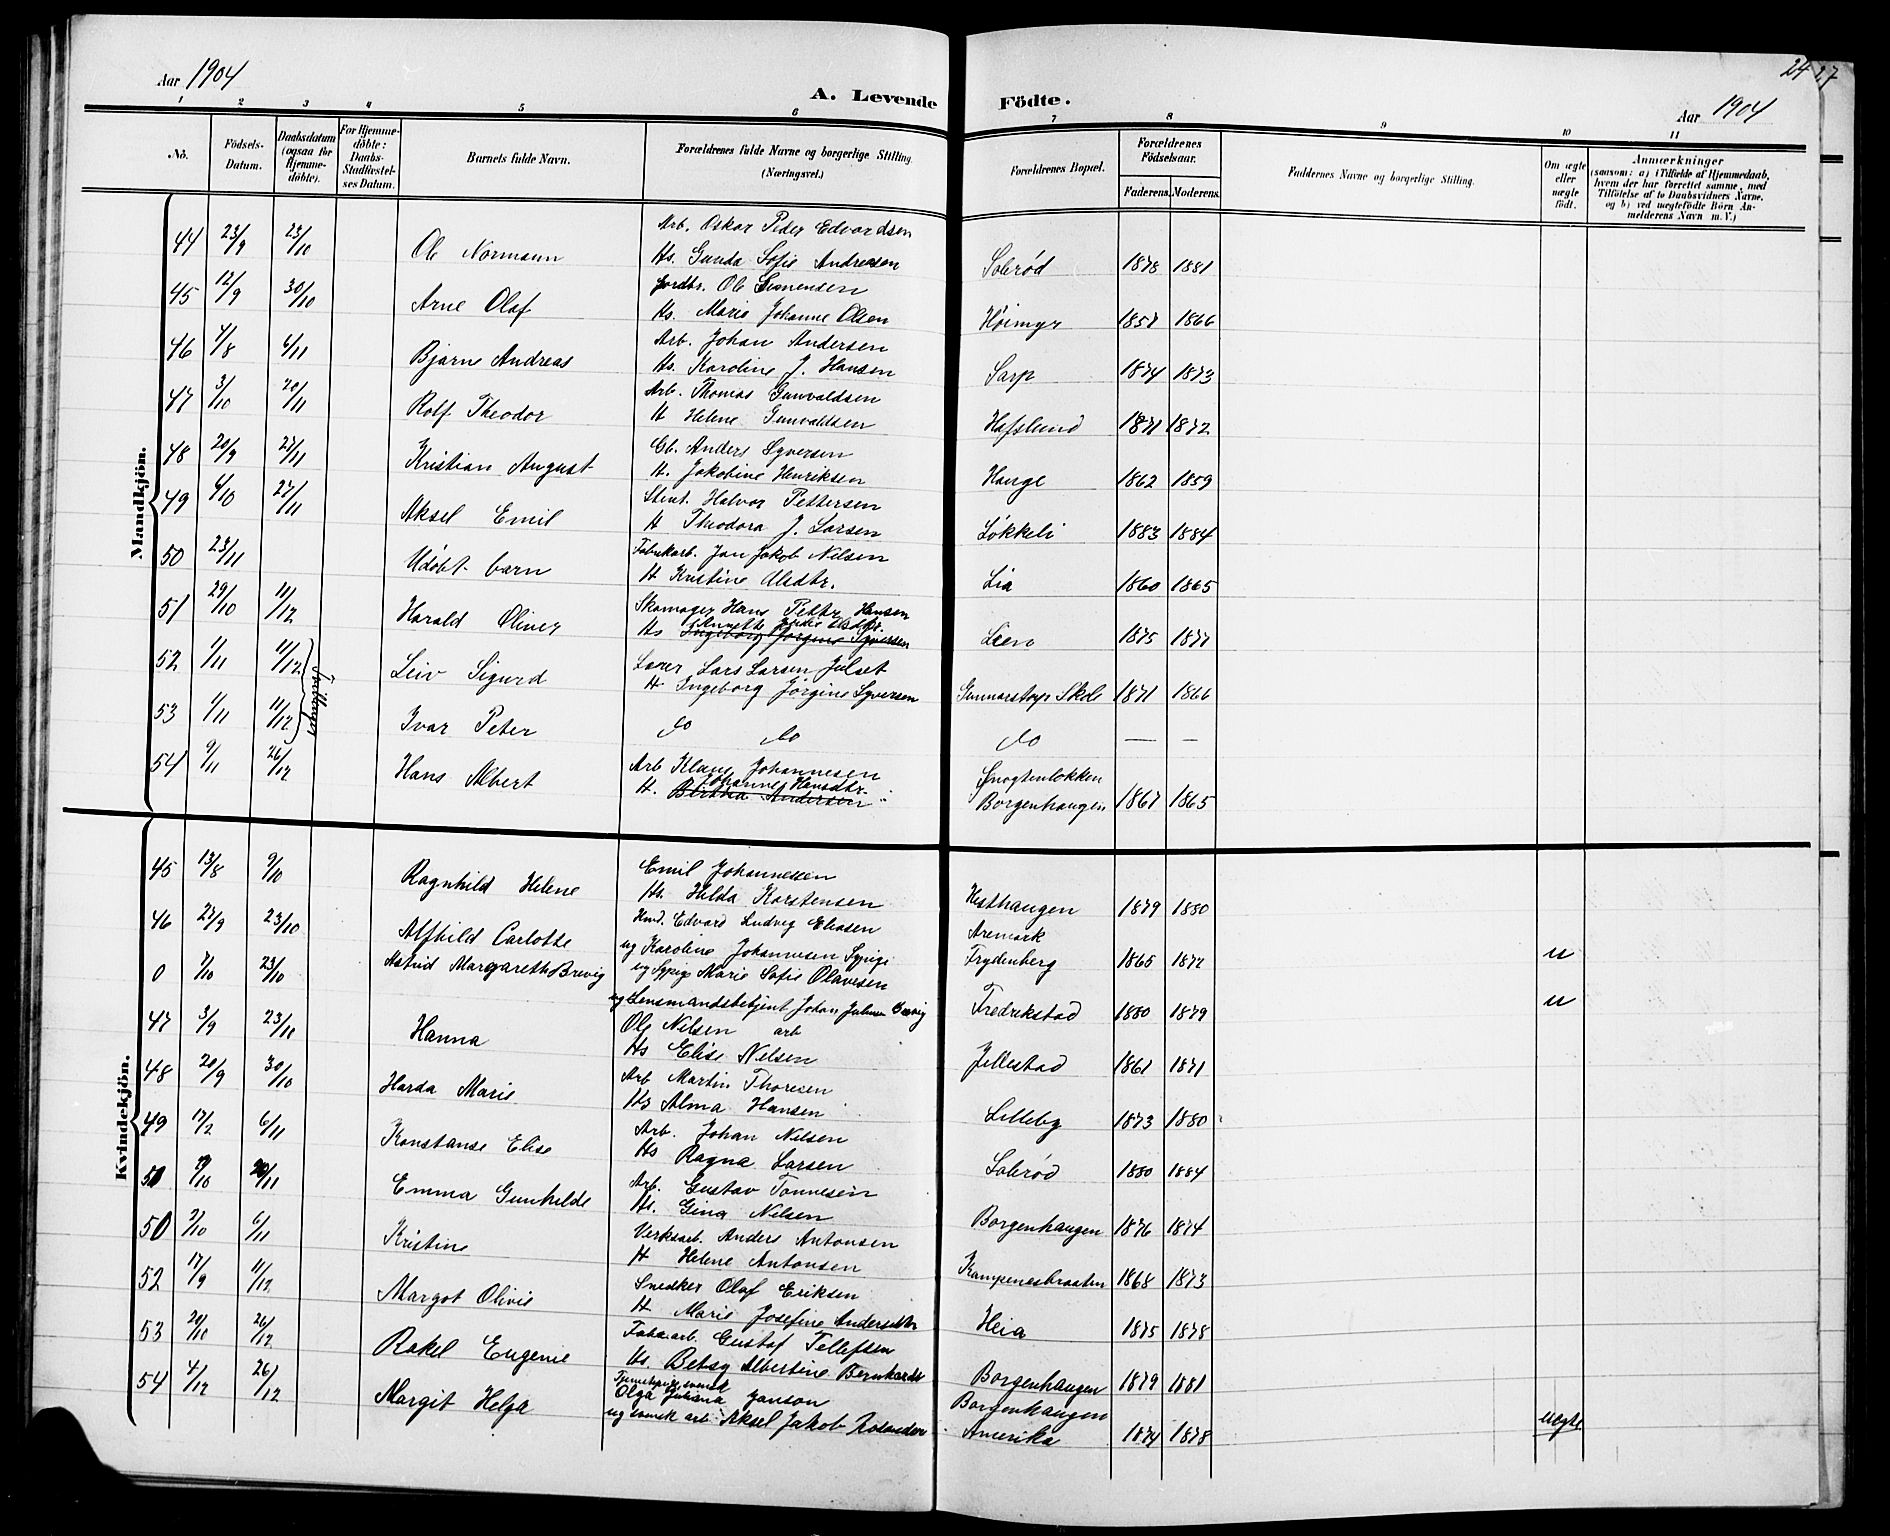 Aar 1904
A. Levende Födte.
Aar 1904
24
1 2 3 4 5 6 7 8 9 10 11
No.
Födsels-Datum.
Daabsdatum (ogsaa for Hjemme-döbte).
For Hjemme-döbte: Daabs-Stadfæstel-ses Datum.
Barnets fulde Navn.
Forældrenes fulde Navne og borgerlige Stilling. (Næringsvei.)
Forældrenes Bopæl.
Forældrenes Födselsaar.
Faderens. Moderens.
Faddernes Navne og borgerlige Stilling.
Om ægte eller uægte födt.
Anmærkninger
(saasom: a) i Tilfælde af Hjemmedaab, hvem der har forrettet samme, med Tilföielse af to Daabsvidners Navne, og b) ved uegtefödte Börn An-melderens Navn m. V.)
Mandkjön.
44 23/9 23/10 Ole Normann Arb. Oskar Peder Edvardsen
Hs. Gunda Sofie Andresen Solerød 1878 1881
45 12/9 30/10 Arne Olaf Jordbr. Ole Simensen
Hs. Marie Johanne Olsen Høimyr 1857 1866
46 4/8 6/11 Bjarne Andreas Arb. Johan Andersen
Hs. Karoline J. Hansen Sarp 1874 1873
47 3/10 20/11 Rolf Theodor Arb. Thomas Gunvaldsen
H Helene Gunvaldsen Hafslund 1871 1872
48 20/9 27/11 Kristian August Gb. Anders Syversen
H. Jakobine Henriksen Hauge 1862 1859
49 4/10 27/11 Aksel Emil Stent. Halvor Pettersen
H Theodora J. Larsen Løkkeli 1883 1884
50 23/11 Udøbt barn Fabrikarb. Jan Jakob Nilsen
H Kristine Olsdtr. Lia 1860 1865
51 29/10 11/12 Harald Oliver Skomager Hans Petter Hansen
Hs Ingeborg Jørgine Syversen Lien 1875 1877
52 1/11 11/12 Leiv Sigurd Lærer Lars Larsen Julset
H Ingeborg Jørgine Syversen Gunnarstorp Skole 1871 1866
Tvillinger
53 1/11 11/12 Ivar Peter do do do — —
54 9/11 26/12 Hans Albert Arb Klaus Johannesen
Johanne Hansdtr.
H. Bertha Andersen Borgenhaugen 1867 1865
Kvindekjön.
45 13/8 9/10 Ragnhild Helene Emil Johannessen
Hs. Hilda Karstensen Hesthaugen 1879 1880
46 27/9 23/10 Alfhild Carlotte Edvard Ludvig Eliasen Aremark
ug Karoline Johannesen Sypige Frydenberg 1865 1872 u
0 7/10 23/10 Astrid Margareth Brevig ug Sypige Marie Sofie Olavesen
ug Lensmandsbetjent Johan Julius Brevig Fredrikstad 1880 1879 u
47 3/9 23/10 Hanna Ole Nilsen arb
Hs Elise Nilsen Jellestad 1861 1871
48 20/9 30/10 Harda Marie Arb Martin Thoresen
Hs Alma Hansen Lilleby 1873 1880
49 17/2 6/11 Konstanse Elise Arb. Johan Nilsen
Hs Ragna Larsen Solerød 1880 1884
51 /10 20/11 Emma Gunhilde Arb. Gustav Tønnesen
Hs. Gina Nilsen Borgenhaugen 1876 1874
50 2/10 6/11 Kristine Verksarb. Anders Antonsen
H Helene Antonsen Kampenesbraaten 1868 1873
52 17/9 11/12 Margot Olivie Snedker Olaf Eriksen
H Marie Josefine Andersdtr Heia 1875 1878
53 20/10 26/12 Rakel Eugenie Fabr.arb. Gustaf Tellefsen
Hs. Betsy Albertine Bernhards Borgenhaugen 1879 1881
54 4/12 26/12 Margit Helga Tjenestepige svensk
Olga Juliana Janson Borgenhaugen
ug svensk arb. Aksel Jakob Rosander Amerika 1874 1878 uægte